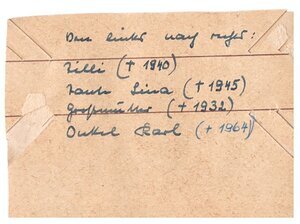 Von links nach rechts:
Lilli († 1940)
Tante Lina († 1945)
Großmutter († 1932)
Onkel Karl († 1964)